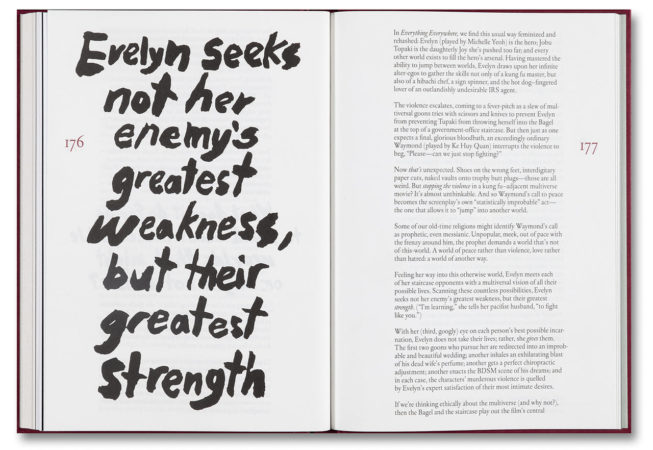 Evelyn seeks
not her
enemy's
greatest
weakness,
but their
greatest
strength
176
In Everything Everywhere, we find this usual way feminized and
rehashed: Evelyn (played by Michelle Yeoh) is the hero; Jobu
Topaki is the daughterly Joy she's pushed too far; and every
other world exists to fill the hero's arsenal. Having mastered the
ability to jump between worlds, Evelyn draws upon her infinite
alter-egos to gather the skills not only of a kung fu master, but
also of a hibachi chef, a sign spinner, and the hot dog–fingered
lover of an outlandishly undesirable IRS agent.
The violence escalates, coming to a fever-pitch as a slew of mul-
tiversal goons tries with scissors and knives to prevent Evelyn
from preventing Tupaki from throwing herself into the Bagel
at the top of a government-office staircase. But then just as one
expects a final, glorious bloodbath, an exceedingly ordinary
Waymond (played by Ke Huy Quan) interrupts the violence to
beg, “Please—can we just stop fighting?”
Now that's unexpected. Shoes on the wrong feet, interdigitary
paper cuts, naked vaults onto trophy butt plugs—those are all
weird. But stopping the violence in a kung fu–adjacent multiverse
movie? It's almost unthinkable. And so Waymond's call to peace
becomes the screenplay's own “statistically improbable” act—
the one that allows it to “jump” into another world.
Some of our old-time religions might identify Waymond's call
as prophetic, even messianic. Unpopular, meek, out of pace with
the frenzy around him, the prophet demands a world that's not
of this world. A world of peace rather than violence, love rather
than hatred: a world of another way.
Feeling her way into this otherwise world, Evelyn meets each
of her staircase opponents with a multiversal vision of all their
possible lives. Scanning these countless possibilities, Evelyn
seeks not her enemy's greatest weakness, but their greatest
strength. (“I'm learning,” she tells her pacifist husband, “to fight
like you.”)
With her (third, googly) eye on each person's best possible incar-
nation, Evelyn does not take their lives; rather, she gives them.
The first two goons who pursue her are redirected into an improb-
able and beautiful wedding; another inhales an exhilarating blast
of his dead wife's perfume; another gets a perfect chiropractic
adjustment; another enacts the BDSM scene of his dreams; and
in each case, the characters' murderous violence is quelled
by Evelyn's expert satisfaction of their most intimate desires.
If we're thinking ethically about the multiverse (and why not?),
then the Bagel and the staircase play out the film's central
177